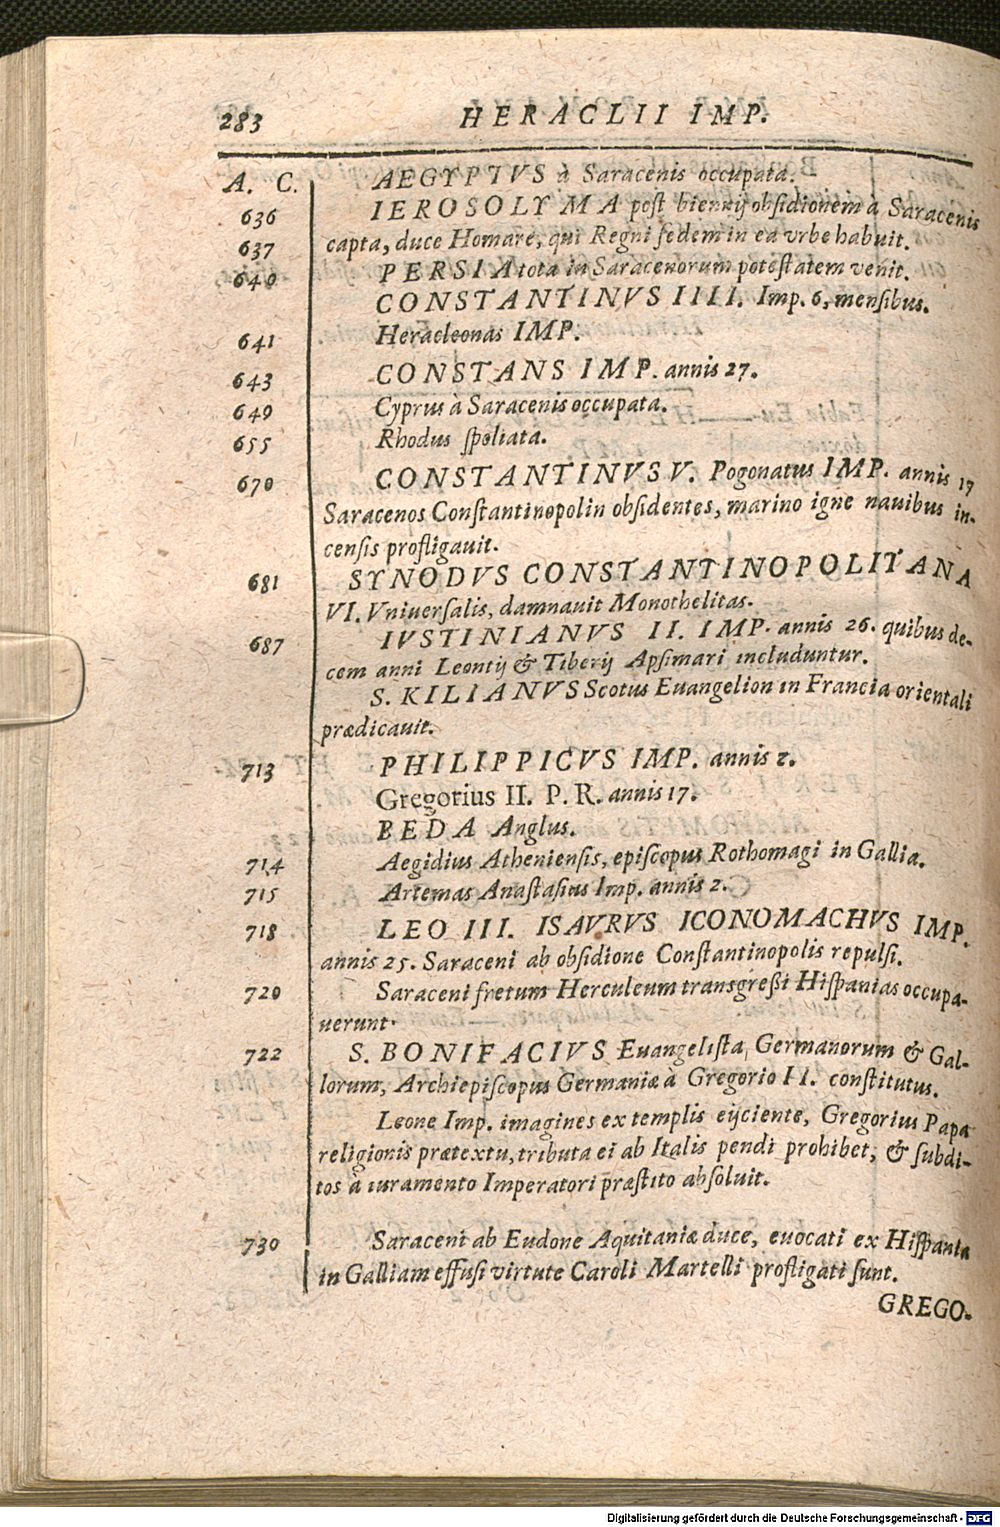 283 HERACLII IMP.
A. C. AEGYPTVS à Saracenis occupata.
636 IEROSOLYMA post biennij obsidionem à Saracenis
637 capta, duce Homare, qui Regni sedem in ea vrbe habuit.
640 PERSIA tota in Saracenorum potestatem venit.
CONSTANTINVS IIII. Imp. 6, mensibus.
641 Heracleonas IMP.
643 CONSTANS IMP. annis 27.
649 Cyprus à Saracenis occupata.
655 Rhodus spoliata.
670 CONSTANTINVS V. Pogonatus IMP. annis 17
Saracenos Constantinopolin obsidentes, marino igne nauibus in-
censis profligauit.
681 SYNODVS CONSTANTINOPOLITANA
VI. Vniuersalis, damnauit Monothelitas.
687 IVSTINIANVS II. IMP. annis 26. quibus de-
cem anni Leontij & Tiberij Apsimari includuntur.
S. KILIANVS Scotus Euangelion in Francia orientali
prædicauit.
713 PHILIPPICVS IMP. annis 2.
Gregorius II. P. R. annis 17.
BEDA Anglus.
714 Aegidius Atheniensis, episcopus Rothomagi in Gallia.
715 Artemas Anastasius Imp. annis 2.
718 LEO III. ISAVRVS ICONOMACHVS IMP.
annis 25. Saraceni ab obsidione Constantinopolis repulsi.
720 Saraceni fretum Herculeum transgreßi Hispanias occupa-
uerunt.
722 S. BONIFACIVS Euangelista, Germanorum & Gal-
lorum, Archiepiscopus Germaniæ à Gregorio II. constitutus.
Leone Imp. imagines ex templis eijciente, Gregorius Papa
religionis prætextu, tributa ei ab Italis pendi prohibet, & subdi-
tos à iuramento Imperatori præstito absoluit.
730 Saraceni ab Eudone Aquitaniæ duce, euocati ex Hispania
in Galliam effusi virtute Caroli Martelli profligati sunt.
GREGO-
Digitalisierung gefördert durch die Deutsche Forschungsgemeinschaft - DFG